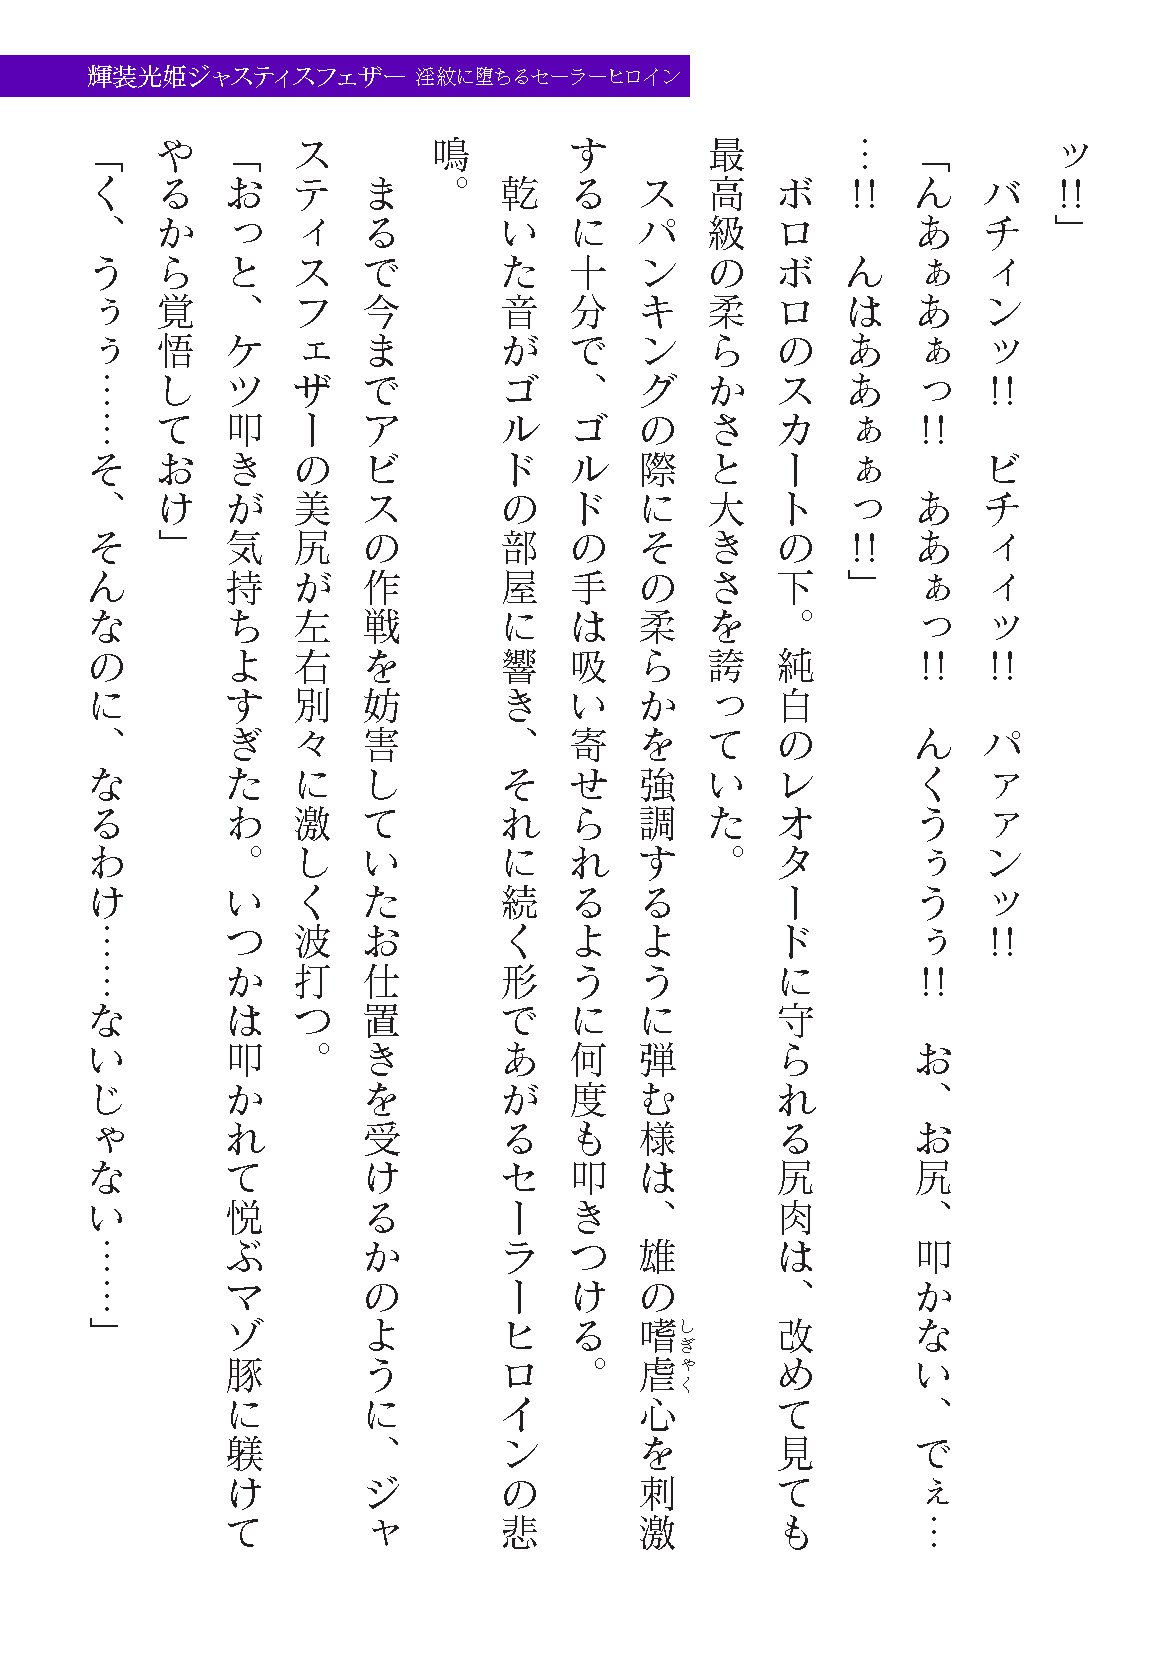 輝装光姫ジャスティスフェザー 淫紋に堕ちるセーラーヒロイン
ッ!!」
　バチィンッ!!　ビチィィッ!!　パァァンッ!!
「んあぁあぁっ!!　ああぁっ!!　んくうぅうぅ!!　お、お尻、叩かない、でぇ…
…!!　んはああぁぁっ!!」
　ボロボロのスカートの下。純白のレオタードに守られる尻肉は、改めて見ても
最高級の柔らかさと大きさを誇っていた。
　スパンキングの際にその柔らかを強調するように弾む様は、雄の嗜虐心を刺激
しぎゃく
するに十分で、ゴルドの手は吸い寄せられるように何度も叩きつける。
　乾いた音がゴルドの部屋に響き、それに続く形であがるセーラーヒロインの悲
鳴。
　まるで今までアビスの作戦を妨害していたお仕置きを受けるかのように、ジャ
スティスフェザーの美尻が左右別々に激しく波打つ。
「おっと、ケツ叩きが気持ちよすぎたわ。いつかは叩かれて悦ぶマゾ豚に躾けて
やるから覚悟しておけ」
「く、うぅぅ……そ、そんなのに、なるわけ……ないじゃない……」